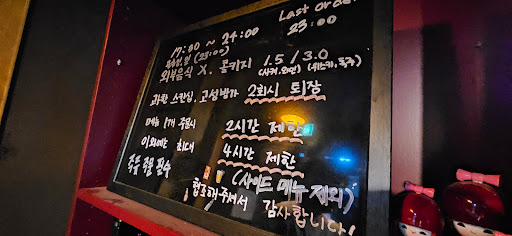 Last order
17:00 ~ 24:00 23:00
일요일 (23:00)
외부음식 X. 콜키지 1.5 / 3.0
(사케.와인) (위스키.폭주)
과한 스킨십, 고성방가 2회시 퇴장
메뉴 1개 주문시 2시간 제한
이외에는 최대 4시간 제한
주문 필수 (사이드 메뉴 제외)
협조해주셔서 감사합니다!